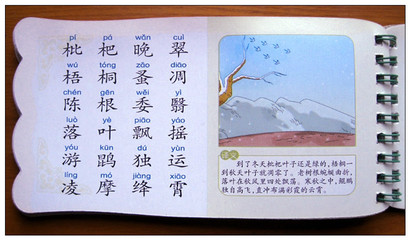 pí pá wǎn cuì
枇 杷 晚 翠
wú tóng zǎo diāo
梧 桐 蚤 凋
chén gēn wěi yì
陈 根 委 翳
luò yè piāo yáo
落 叶 飘 摇
yóu kūn dú yùn
游 鹍 独 运
líng mó jiàng xiāo
凌 摩 绛 霄
译文
到了冬天枇杷叶子还是绿的，梧桐一
到秋天叶子就凋零了。老树根蜿蜒曲折，
落叶在秋风里四处飘荡。寒秋之中，鲲鹏
独自高飞，直冲布满彩霞的云霄。